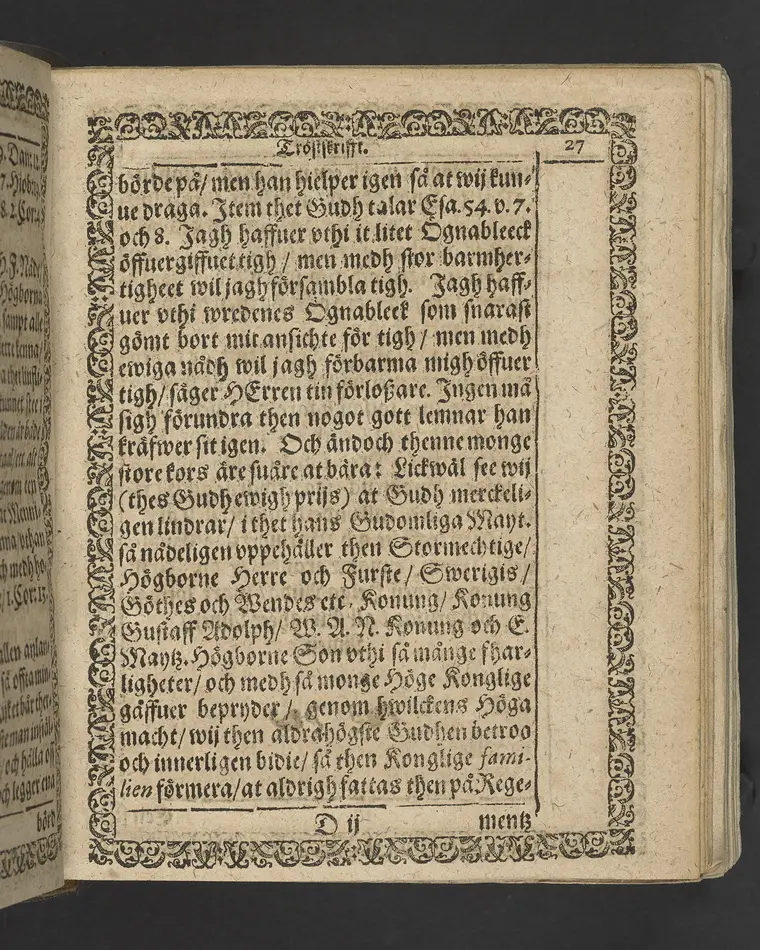 Tröstskrifft.
27
börde på/ men han hielper igen så at wij kun-
ue draga. Item thet Gudh talar Esa. 54. v. 7.
och 8. Jagh haffuer vthi it litet Ognableeck
öffuergiffuet tigh / men medh stor barmher-
tigheet wil jagh försambla tigh. Jagh haff-
uer vthi wredenes Ognableck som snarast
gömt bort mit ansichte för tigh / men medh
ewiga nådh wil jagh förbarma migh öffuer
tigh/ säger HErren tin förloßare. Ingen må
sigh förundra then nogot gott lemnar han
kräfwer sit igen. Och ändoch thenne monge
store kors äre suåre at bära: Lickwäl see wij
(thes Gudh ewigh prijs) at Gudh merckeli-
gen lindrar/ i thet hans Gudomliga Mayt.
så nådeligen vppehåller then Stormechtige/
Högborne Herre och Furste/ Swerigis/
Göthes och Wendes etc. Konung/ Konung
Gustaff Adolph/ W. A. N. Konung och E.
Maytz. Högborne Son vthi så månge fhar-
ligheter/ och medh så monge Höge Konglige
gåffuer bepryder/ genom hwilckens Höga
macht/ wij then aldrahögste Gudhen betroo
och innerligen bidie/ så then Konglige fami-
lien förmera/ at aldrigh fattas then på Rege-
D ij
mentz